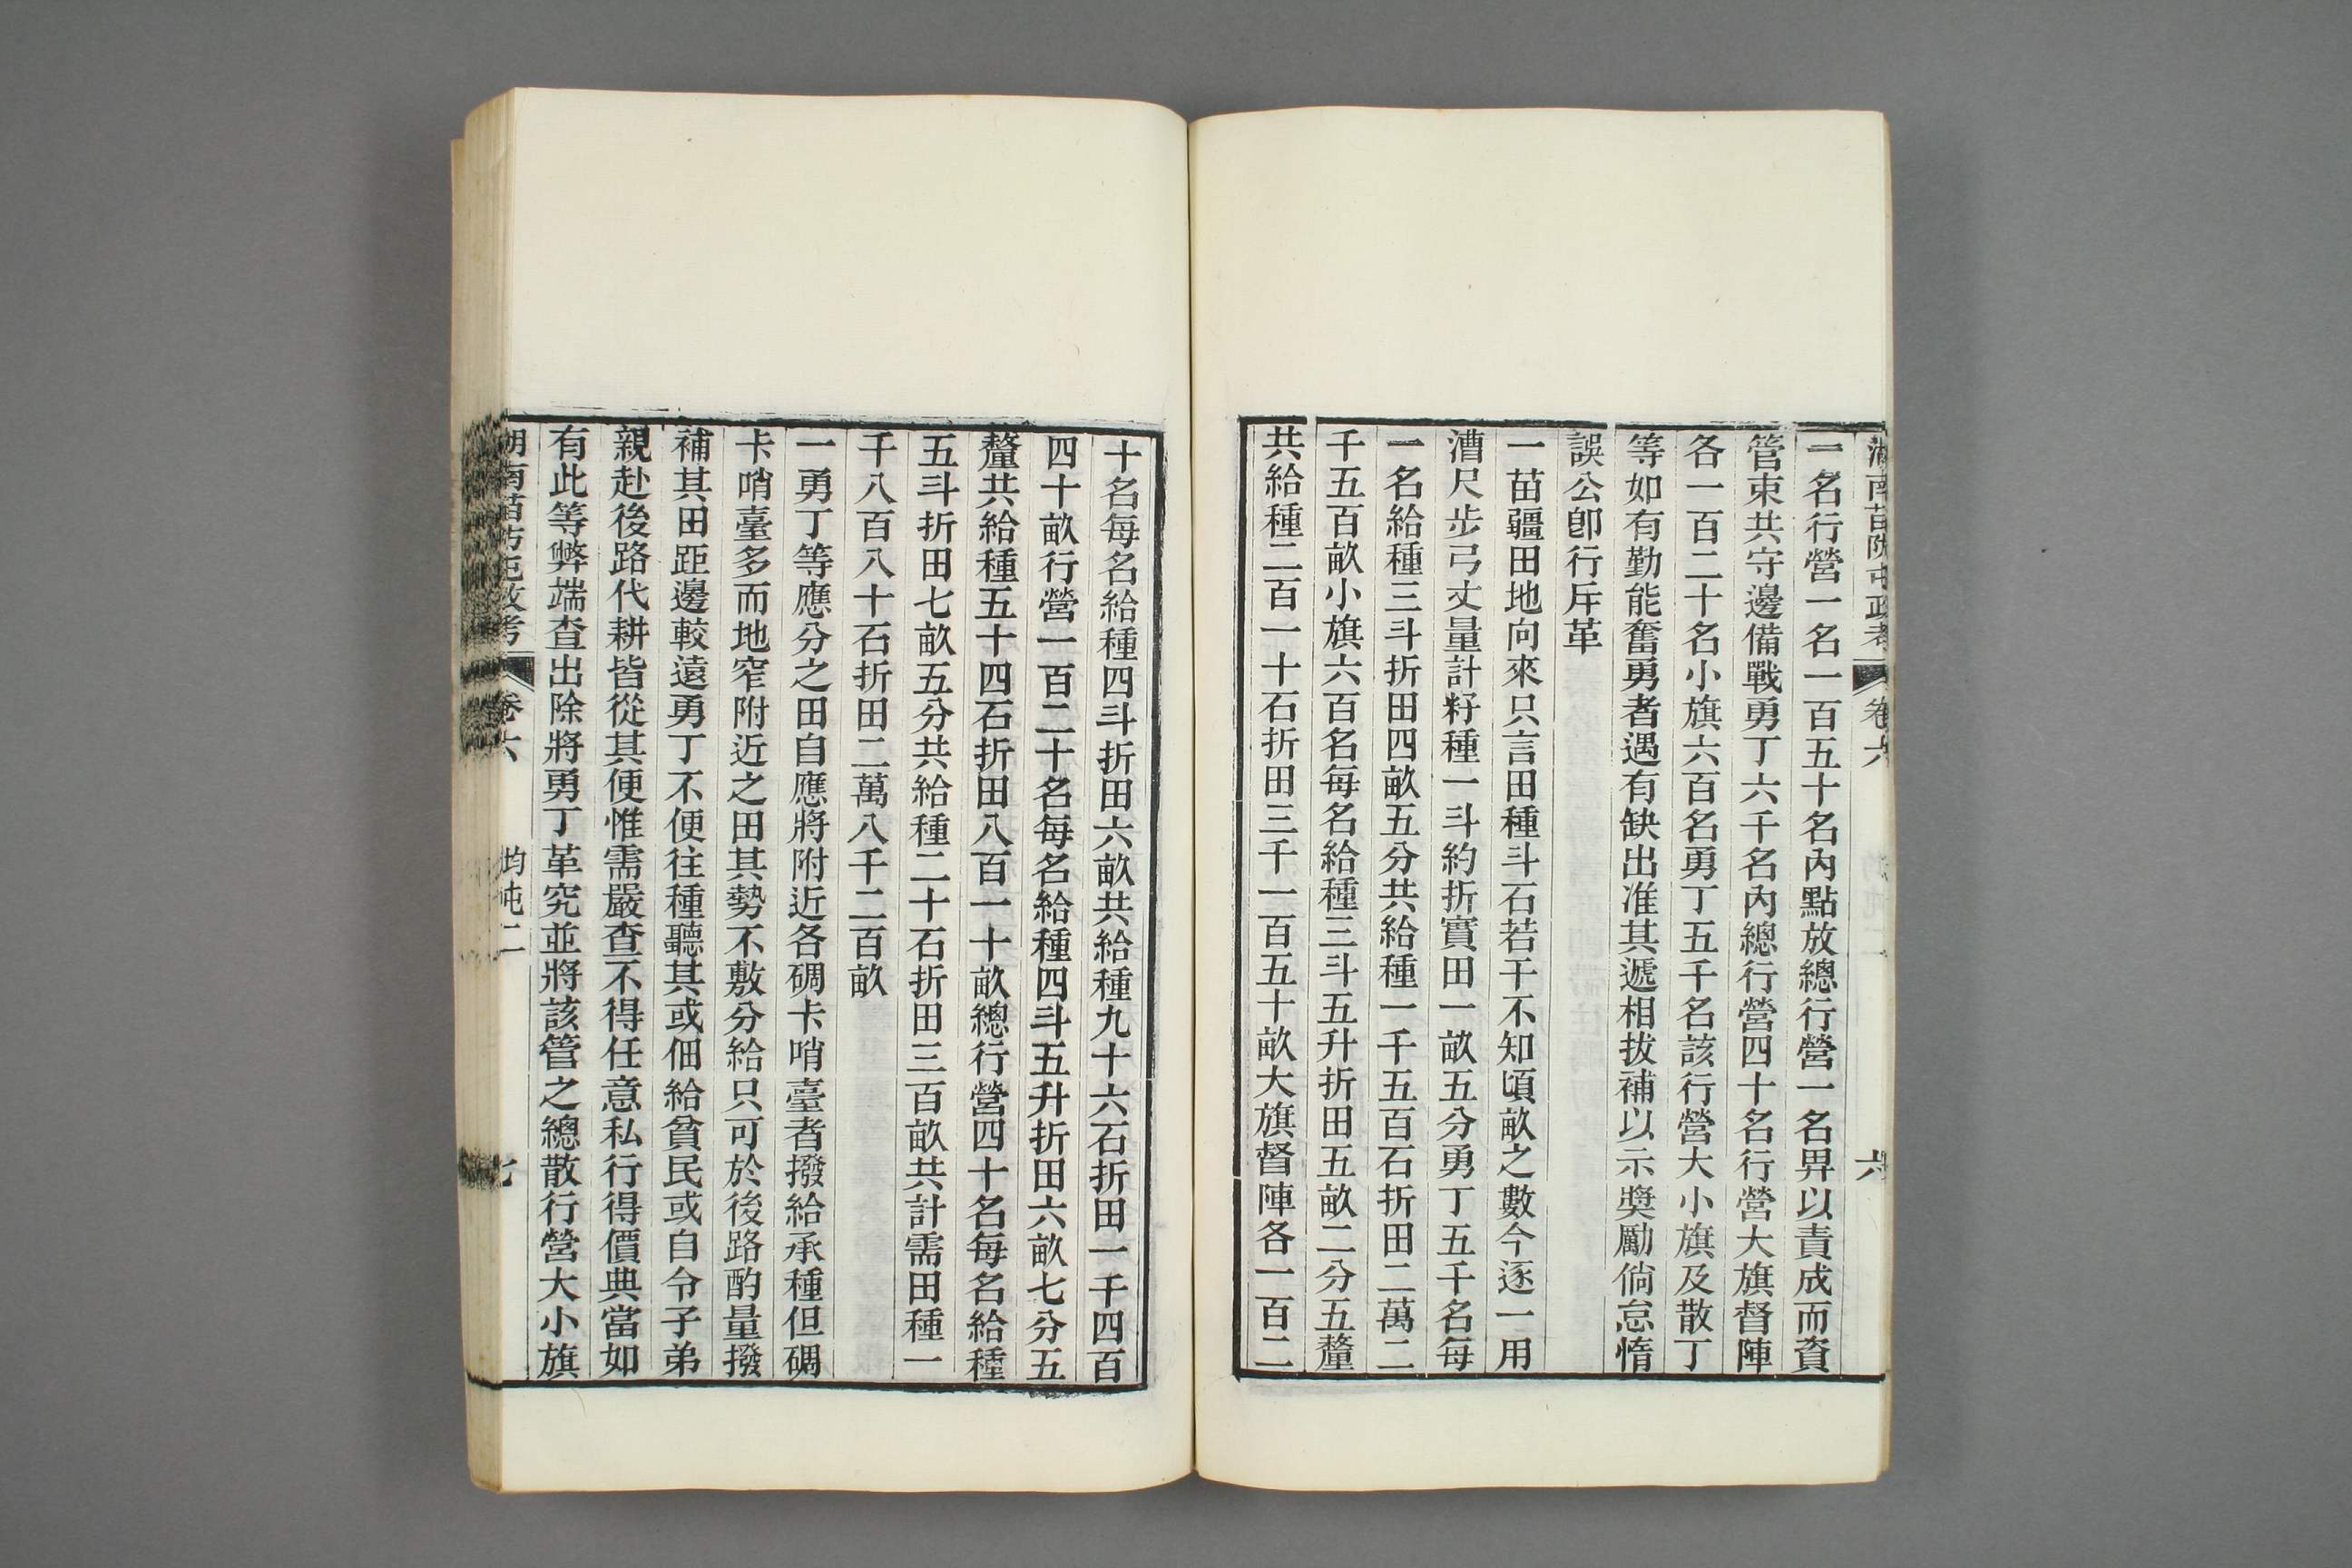 湖南苗防屯政考 卷六 六
一名行營一名一百五十名內點放總行營一名畀以責成而資
管束共守邊備戰勇丁六千名內總行營四十名行營大旗督陣
各一百二十名小旗六百名勇丁五千名該行營大小旗及散丁
等如有勤能奮勇者遇有缺出准其遞相拔補以示獎勵倘怠惰
誤公卽行斥革
一苗疆田地向來只言田種斗石若干不知頃畝之數今逐一用
漕尺步弓丈量計籽種一斗約折實田一畝五分勇丁五千名每
一名給種三斗折田四畝五分共給種一千五百石折田二萬二
千五百畝小旗六百名每名給種三斗五升折田五畝二分五釐
共給種二百一十石折田三千一百五十畝大旗督陣各一百二
十名每名給種四斗折田六畝共給種九十六石折田一千四百
四十畝行營一百二十名每名給種四斗五升折田六畝七分五
釐共給種五十四石折田八百一十畝總行營四十名每名給種
五斗折田七畝五分共給種二十石折田三百畝共計需田種一
千八百八十石折田二萬八千二百畝
一勇丁等應分之田自應將附近各碉卡哨臺者撥給承種但碉
卡哨臺多而地窄附近之田其勢不敷分給只可於後路酌量撥
補其田距邊較遠勇丁不便往種聽其或佃給貧民或白令子弟
親赴後路代耕皆從其便惟需嚴查不得任意私行得價典當如
有此等弊端查出除將勇丁革究並將該管之總散行營大小旗
湖南苗防屯政考 卷六 均屯二 七